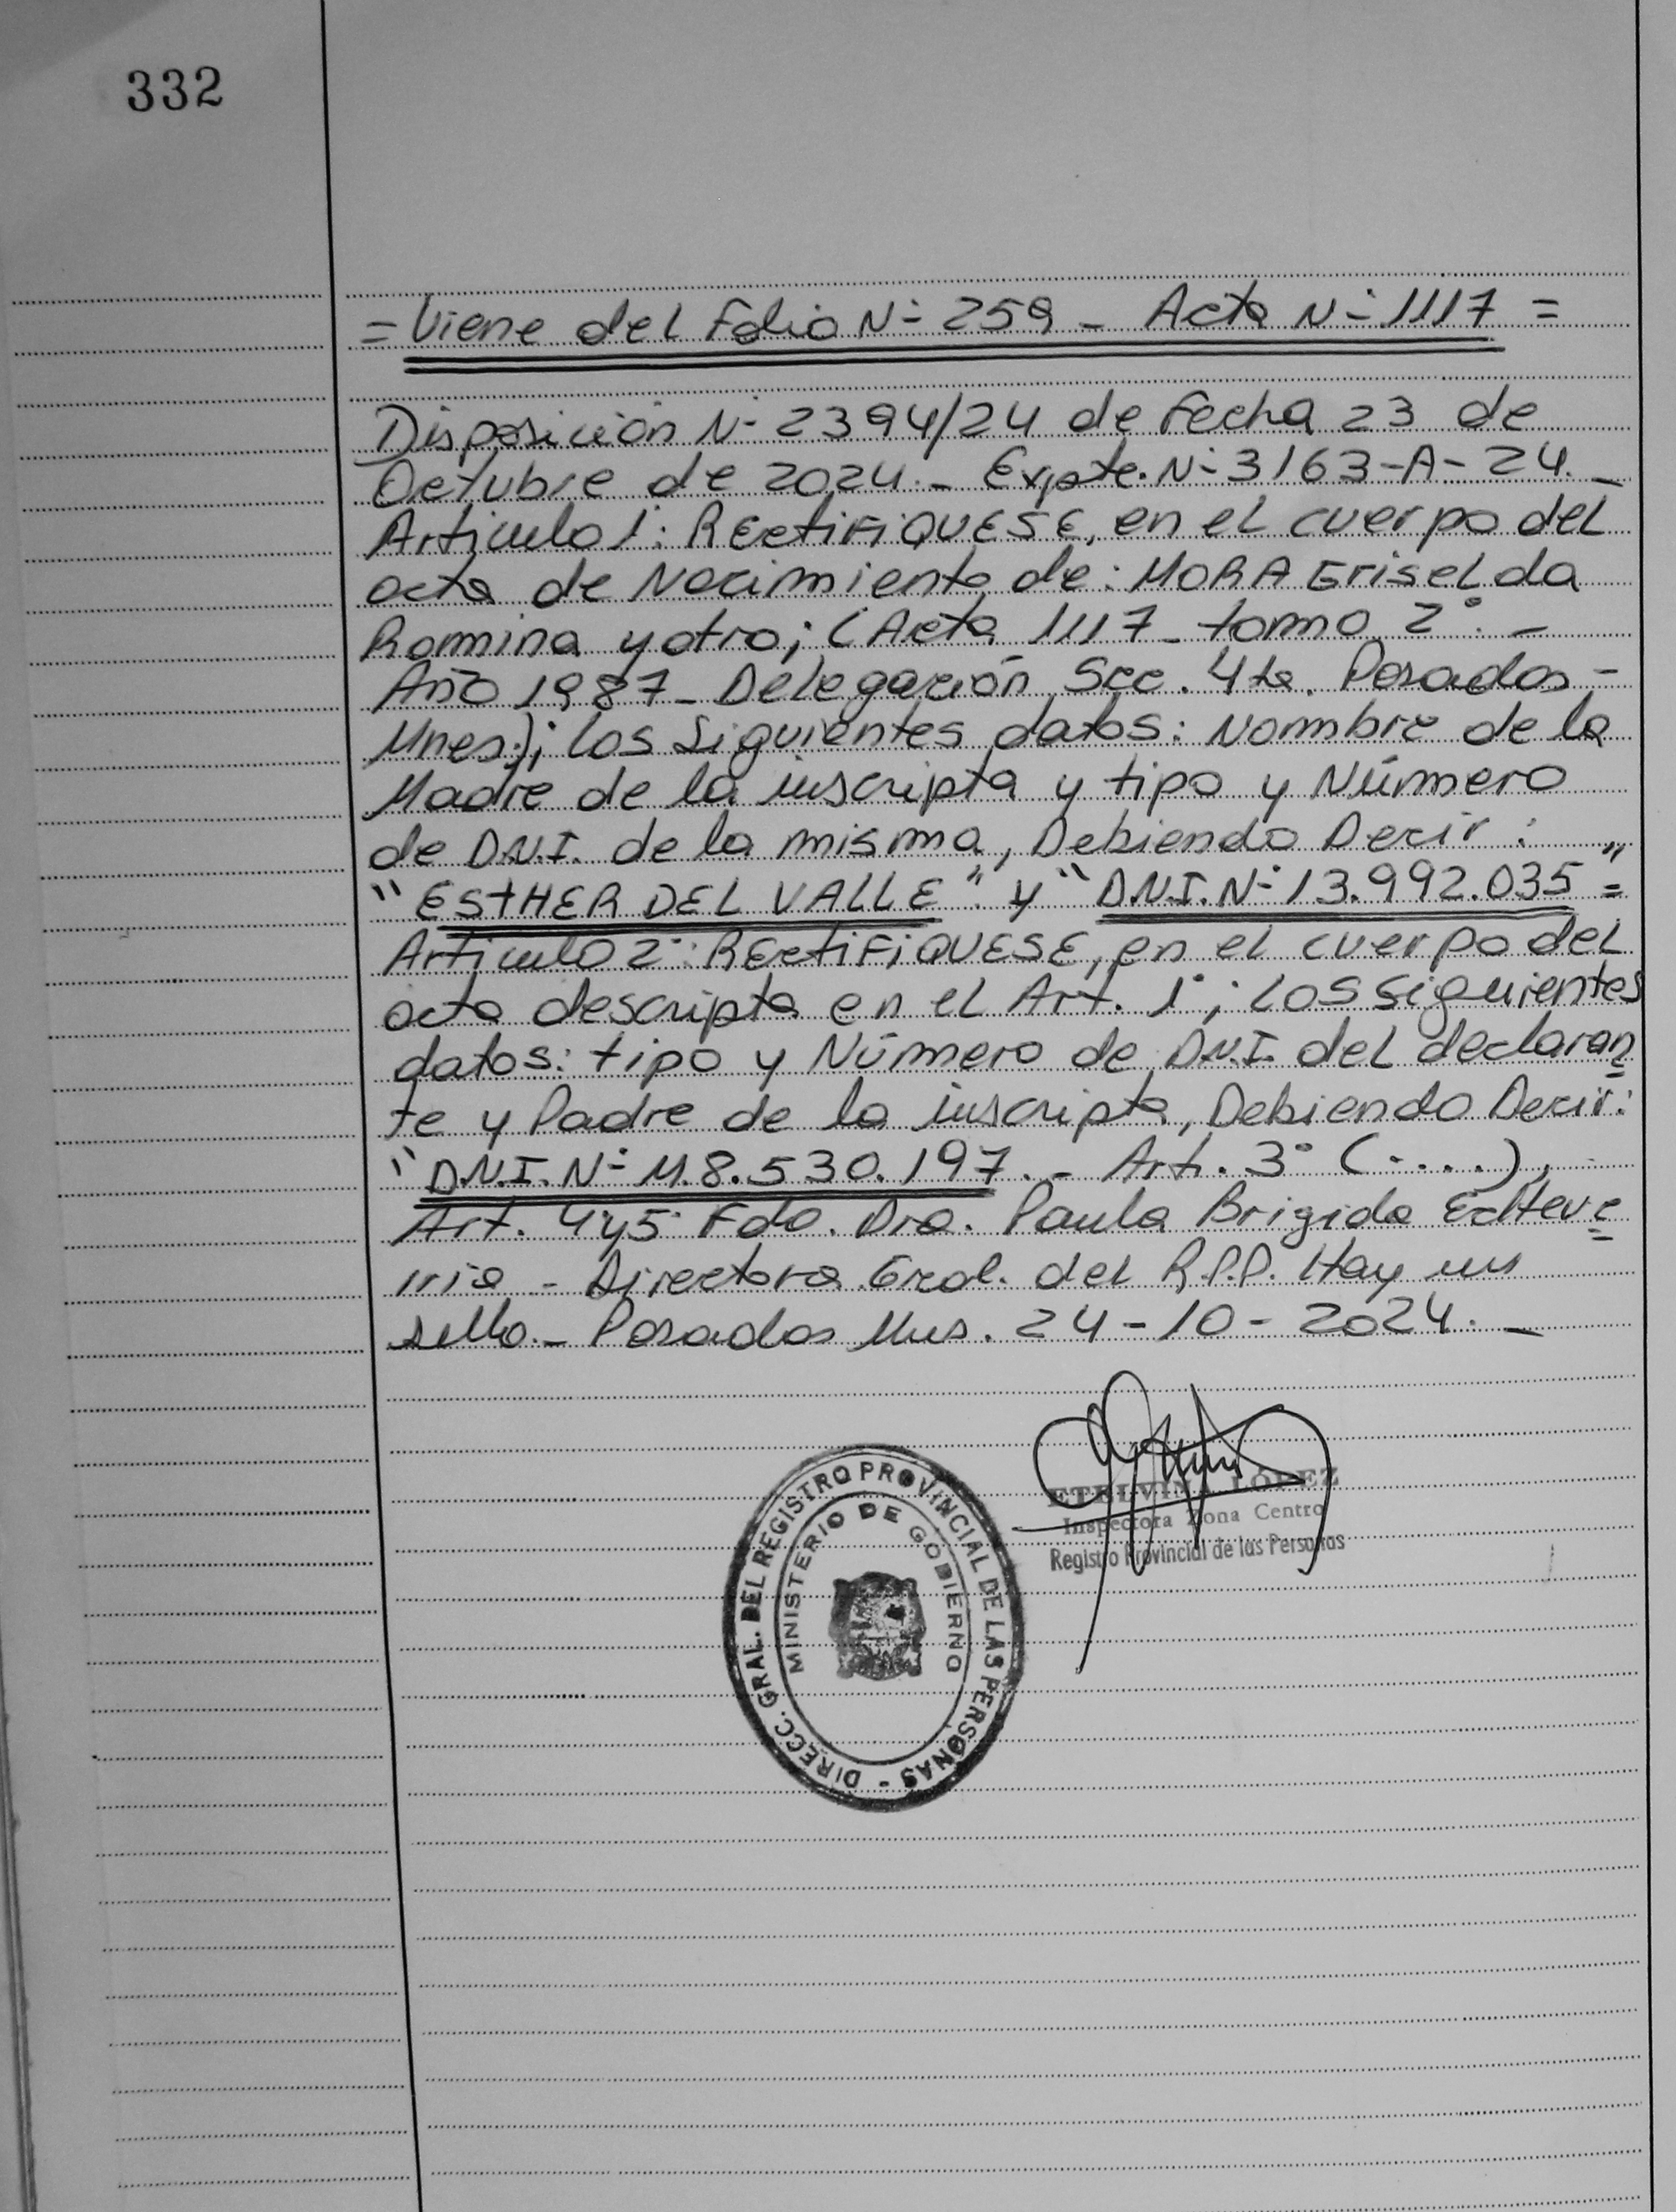 332
= Viene del Folio N° 259 - Acta N° 1117 =
Disposición N° 2394/24 de Fecha 23 de
Octubre de 2024.- Expte. N° 3163-A-24.-
Articulo 1°: RECTIFIQUESE, en el cuerpo del
acta de Nacimiento de: MORA Griselda
Romina y otro; (Acta 1117 - tomo 2°. -
Año 1987 - Delegación Scc. 4ta. Posadas -
Mnes.); los siguientes datos: Nombre de la
Madre de la inscripta y tipo y Número
de D.N.I. de la misma, Debiendo Decir:
"ESTHER DEL VALLE" y "D.N.I. N° 13.992.035" =
Articulo 2°: RECTIFIQUESE, en el cuerpo del
acta descripta en el Art. 1°; los siguientes
datos: tipo y Número de D.N.I. del declaran=
te y Padre de la inscripta, Debiendo Decir:
"D.N.I. N° M.8.530.197. - Art. 3° (....),
Art. 4y5° Fdo. Dra. Paula Brigida Echeve=
rria - Directora Gral. del R.P.P. Hay un
sello.- Posadas Mns. 24-10-2024. -
ETELVINA LÓPEZ
Inspectora Zona Centro
Registro Provincial de las Personas
DIRECC. GRAL. DEL REGISTRO PROVINCIAL DE LAS PERSONAS -
MINISTERIO DE GOBIERNO